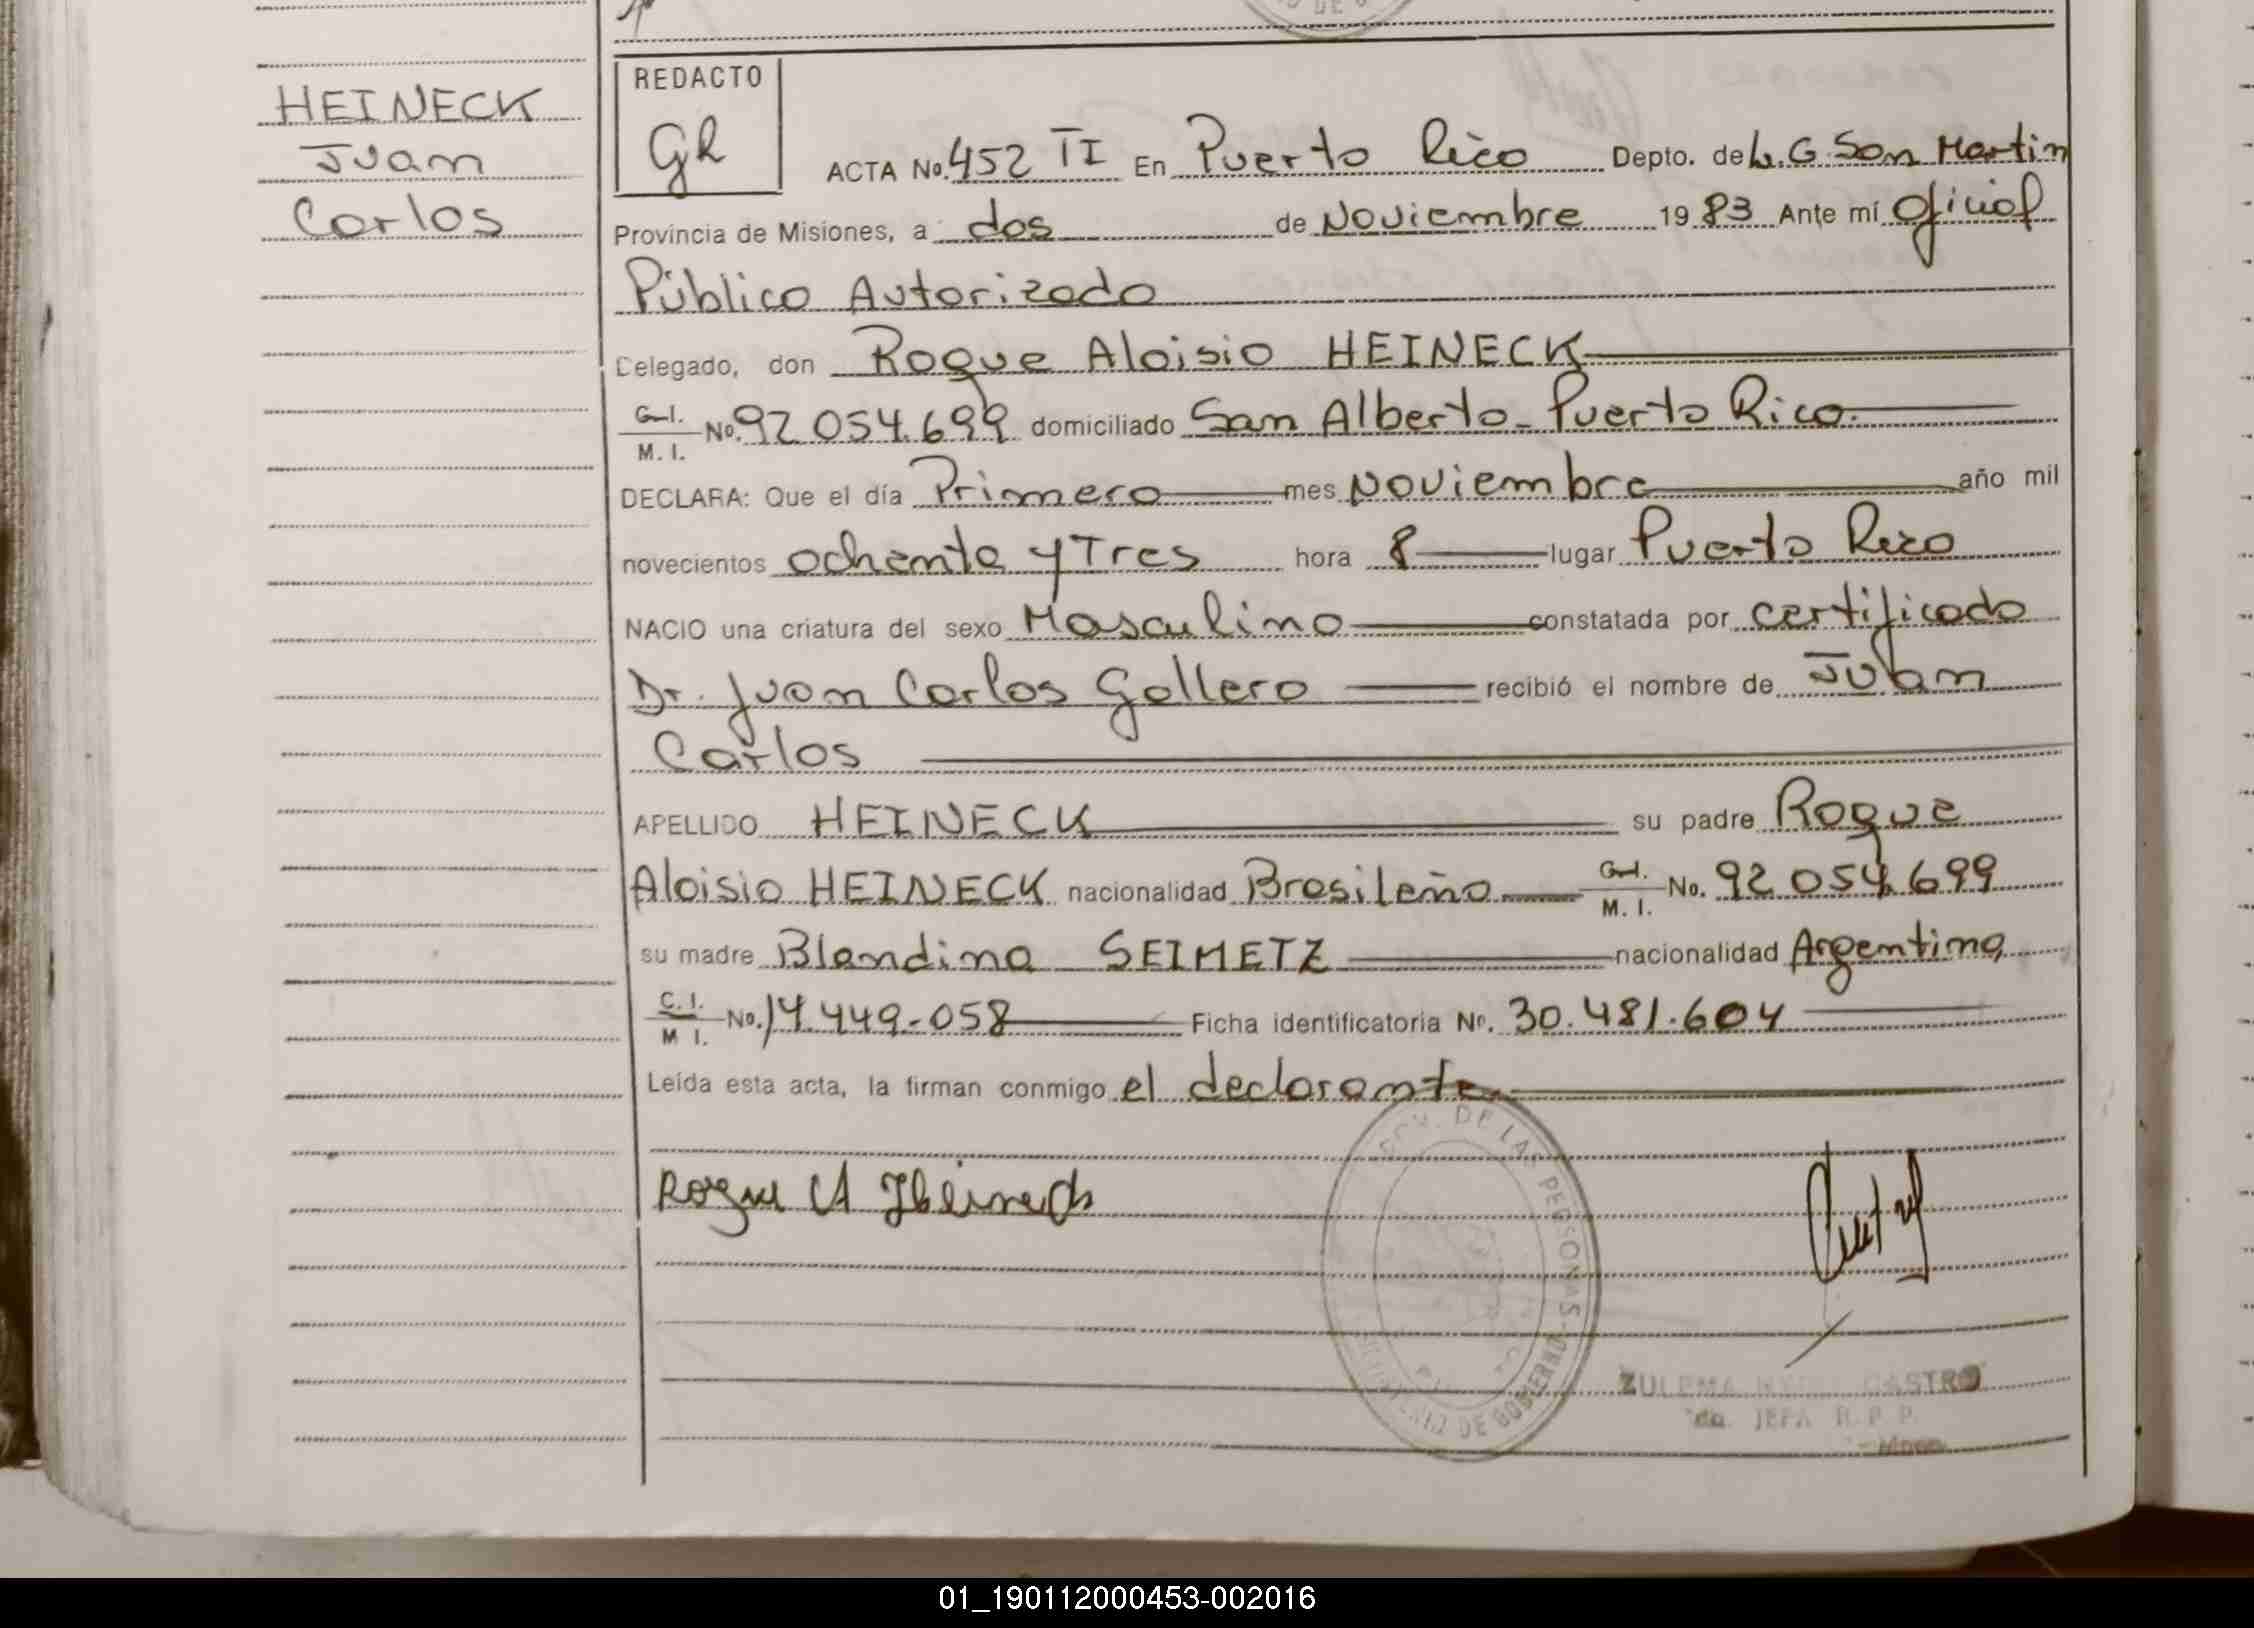 HEINECK
Juan
Carlos
REDACTO
GR
ACTA No. 452 TI En Puerto Rico Depto. de L. G. San Martin
Provincia de Misiones, a dos de Noviembre 19 83 Ante mí Oficial
Público Autorizado
Delegado, don Roque Aloisio HEINECK
C.I. M. I. No. 92 054.699 domiciliado San Alberto - Puerto Rico.
DECLARA: Que el día Primero mes Noviembre año mil
novecientos ochenta y Tres hora 8 lugar Puerto Rico
NACIO una criatura del sexo Masculino constatada por certificado
Dr. Juan Carlos Gallero recibió el nombre de Juan
Carlos
APELLIDO HEINECK su padre Roque
Aloisio HEINECK nacionalidad Brasileño C.I. M. I. No. 92 054.699
su madre Blandina SEIMETZ nacionalidad Argentina,
C. I. M I. No. 14.449.058 Ficha identificatoria Nº. 30.481.604
Leída esta acta, la firman conmigo el declarante.
Roque A Heineck
DE LAS PERSONAS - MINISTERIO DE GOBIERNO
ZULEMA CASTRO
JEFA R. P. P.
01_190112000453-002016